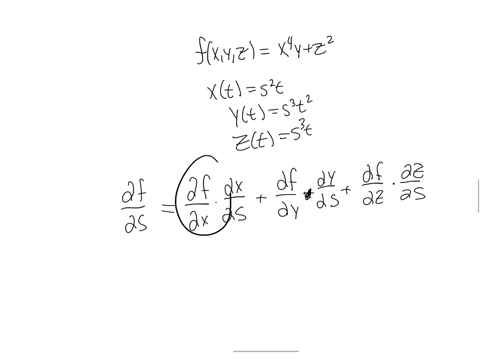 f(x,y,z) = x⁴y+z²
x(t) = s²t
y(t) = s³t²
z(t) = s³t
∂f/∂s = ∂f/∂x · ∂x/∂s + ∂f/∂y · ∂y/∂s + ∂f/∂z · ∂z/∂s